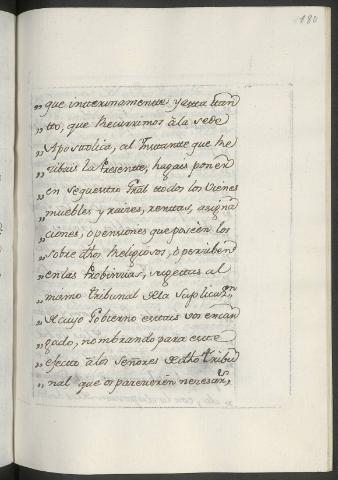 180
„ que interinamente, y hasta tan
„ tto, que recurrimos à la sede
„ Apostolica, al Instante que re
„ cibais la Presente, hagais poner
„ en sequestro Gral ttodos los vienes
„ muebles y raises, renttas, asigna
„ ciones, o pensiones que poseèn los
„ sobre dhos Religiosos, o perciben
„ en las Probinzias, sugettas al
„ mismo tribunal de la Suplicasn
„ de cuyo Gobierno estais vos encar
„ gado, nombrando para estte
„ efecto à los señores de dho tribu
„ nal que os parecieren nezesars,